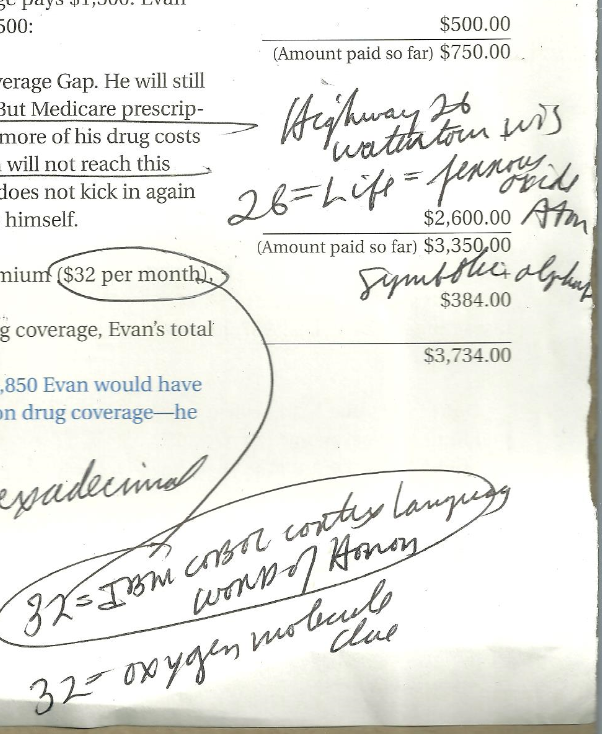 ge pays $1,500. Evan
500:
$500.00
(Amount paid so far) $750.00
verage Gap. He will still
But Medicare prescrip-
more of his drug costs
will not reach this
does not kick in again
himself.
Highway 26
watertown wis
26=Life=ferrous
oxide
Atom
$2,600.00
(Amount paid so far) $3,350.00
symbolic alphab
mium ($32 per month),
$384.00
g coverage, Evan's total
$3,734.00
,850 Evan would have
on drug coverage—he
exadecimal
32=IBM COBOL contex Language
WORD of Honor
32=oxygen molecule
clue